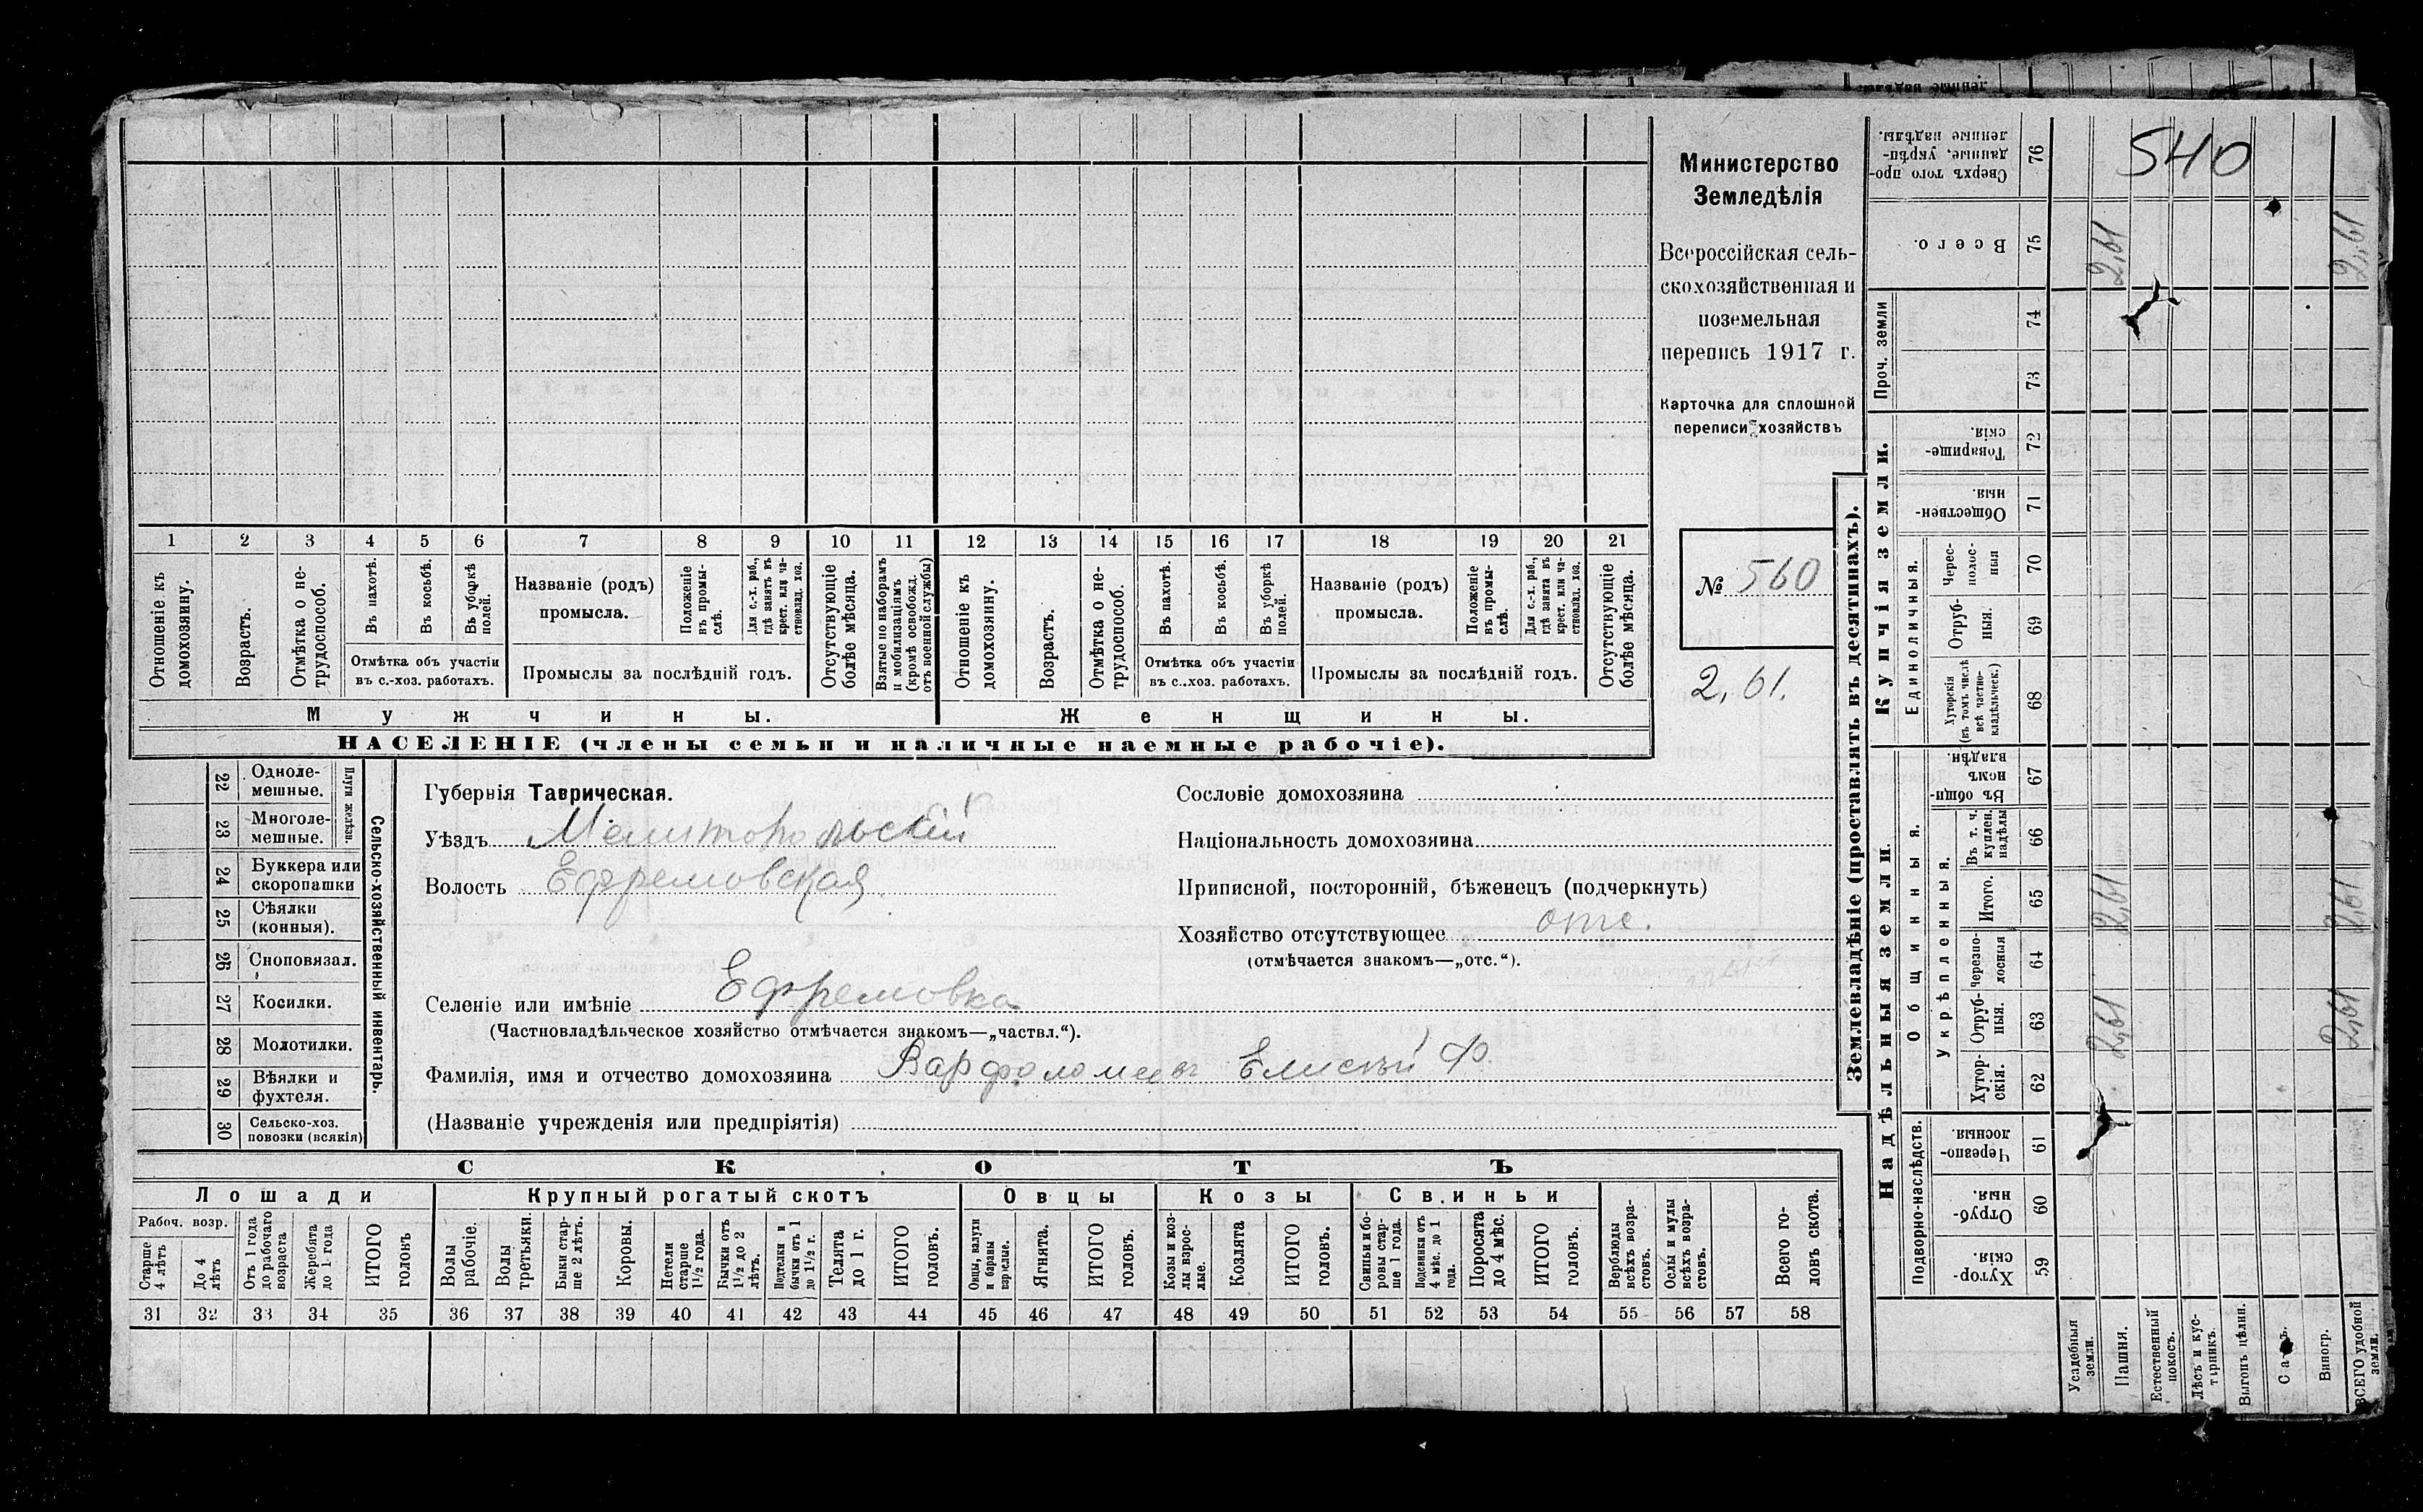 Министерство
Земледѣлія
Всероссійская сель-
скохозяйственная и
поземельная
перепись 1917 г.
Карточка для сплошной
переписи хозяйствъ
№ 560
2,61.
540
1 2 3 4 5 6 7 8 9 10 11 12 13 14 15 16 17 18 19 20 21
Отношеніе къ домохозяину.
Возрастъ.
Отмѣтка о не-трудоспособ.
Въ пахотѣ.
Въ косьбѣ.
Въ уборкѣ полей.
Отмѣтка объ участіи
въ с.-хоз. работахъ.
Названіе (родъ)
промысла.
Положеніе въ промы-слѣ.
Для с.-х. раб., гдѣ занятъ въ крест. или ча-стновлад. хоз.
Промыслы за послѣдній годъ.
Отсутствующіе болѣе мѣсяца.
Взятые по наборамъ и мобилизаціямъ (кромѣ освобожд. отъ военной службы)
Отношеніе къ домохозяину.
Возрастъ.
Отмѣтка о не-трудоспособ.
Въ пахотѣ.
Въ косьбѣ.
Въ уборкѣ полей.
Отмѣтка объ участіи
въ с.-хоз. работахъ.
Названіе (родъ)
промысла.
Положеніе въ промы-слѣ.
Для с.-х. раб., гдѣ занята въ крест. или ча-стновлад. хоз.
Промыслы за послѣдній годъ.
Отсутствующіе болѣе мѣсяца.
Мужчины.
Женщины.
НАСЕЛЕНІЕ (члены семьи и наличные наемные рабочіе).
22 Одноле-мешные.
23 Многоле-мешные.
Плуги желѣзн.
24 Буккера или скоропашки
25 Сѣялки (конныя).
26 Сноповязал.
27 Косилки.
28 Молотилки.
29 Вѣялки и фухтеля.
30 Сельско-хоз. повозки (всякія)
Сельско-хозяйственный инвентарь.
Губернія Таврическая.
Уѣздъ Мелитопольскій
Волость Ефремовская
Селеніе или имѣніе Ефремовка
(Частновладѣльческое хозяйство отмѣчается знакомъ—„частвл.“).
Фамилія, имя и отчество домохозяина Варфоломеевъ Елисѣй Ф.
(Названіе учрежденія или предпріятія)
Сословіе домохозяина
Національность домохозяина
Приписной, посторонній, бѣженецъ (подчеркнуть)
Хозяйство отсутствующее отс.
(отмѣчается знакомъ—„отс.“).
СКОТЪ
Лошади
Крупный рогатый скотъ
Овцы
Козы
Свиньи
Рабоч. возр.
Старше 4 лѣтъ
До 4 лѣтъ
Отъ 1 года до рабочаго возраста
Жеребята до 1 года
ИТОГО головъ
Волы рабочіе.
Волы третьяки.
Быки стар-ше 2 лѣтъ.
Коровы.
Нетели старше 1½ года.
Бычки отъ 1½ до 2 лѣтъ.
Подтелки и бычки отъ 1 до 1½ г.
Телята до 1 г.
ИТОГО головъ.
Овцы, валухи и бараны взрослые.
Ягнята.
ИТОГО головъ.
Козы и коз-лы взрос-лые.
Козлята
ИТОГО головъ.
Свиньи и бо-ровы стар-ше 1 года.
Подсвинки отъ 4 мѣс. до 1 года.
Поросята до 4 мѣс.
ИТОГО головъ.
Верблюды всѣхъ возра-стовъ.
Ослы и мулы всѣхъ возра-стовъ.
Всего го-ловъ скота.
31 32 33 34 35 36 37 38 39 40 41 42 43 44 45 46 47 48 49 50 51 52 53 54 55 56 57 58
Землевладѣніе (проставлять въ десятинахъ).
Проч. земли
Купчія земли.
Единоличныя.
Надѣльныя земли.
Общинныя.
Укрѣпленныя.
Подворно-наслѣдств.
Сверхъ того про-данные, укрѣп-ленные надѣлы. 76
Всего. 75 2,61 2,61
74
73
Товарище-скія. 72
Обществен-ныя. 71
Черес-полос-ныя 70
Отруб-ныя. 69
Хуторскія (въ томъ числѣ всѣ частно-владѣльческ.) 68
Въ общин-номъ владѣн. 67
Въ т. ч. куплен. надѣлы 66
Итого. 65 2,61 2,61
Черезпо-лосныя 64
Отруб-ныя. 63 2,61 2,61
Хутор-скія. 62
Черезпо-лосныя. 61
Отруб-ныя. 60
Хутор-скія. 59
Усадебныя земли.
Пашня.
Естественный покосъ.
Лѣсъ и кус-тарникъ.
Выгонъ цѣлин.
Виногр.
ВСЕГО удобной земли.